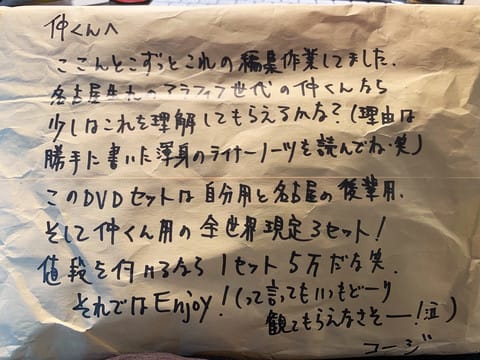 仲くんへ
ここんとこずっとこれの編集作業してました.
名古屋生れのアラフィフ世代の仲くんなら
少しはこれを理解してもらえるかな?(理由は
勝手に書いた渾身のライナーノーツを読んでね・笑)
このDVDセットは自分用と名古屋の後輩用.
そして仲くん用の全世界現定3セット!
値段を付けるなら1セット5万だな笑.
それではEnjoy!(って言ってもいつもどーり
観てもらえなさそー!泣)
コージ